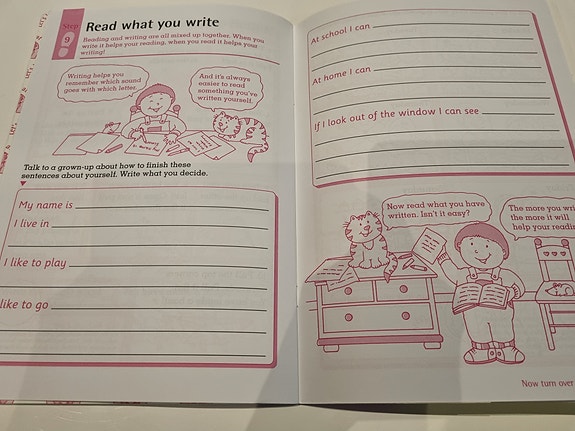 Step
9
Read what you write
Reading and writing are all mixed up together. When you
write it helps your reading, when you read it helps your
writing!
Writing helps you
remember which sound
goes with which letter.
And it's always
easier to read
something you've
written yourself.
Talk to a grown-up about how to finish these
sentences about yourself. Write what you decide.
My name is
I live in
I like to play
like to go
At school I can
At home I can
If I look out of the window I can see
Now read what you have
written. Isn't it easy?
The more you wri
the more it will
help your readin
Now turn over